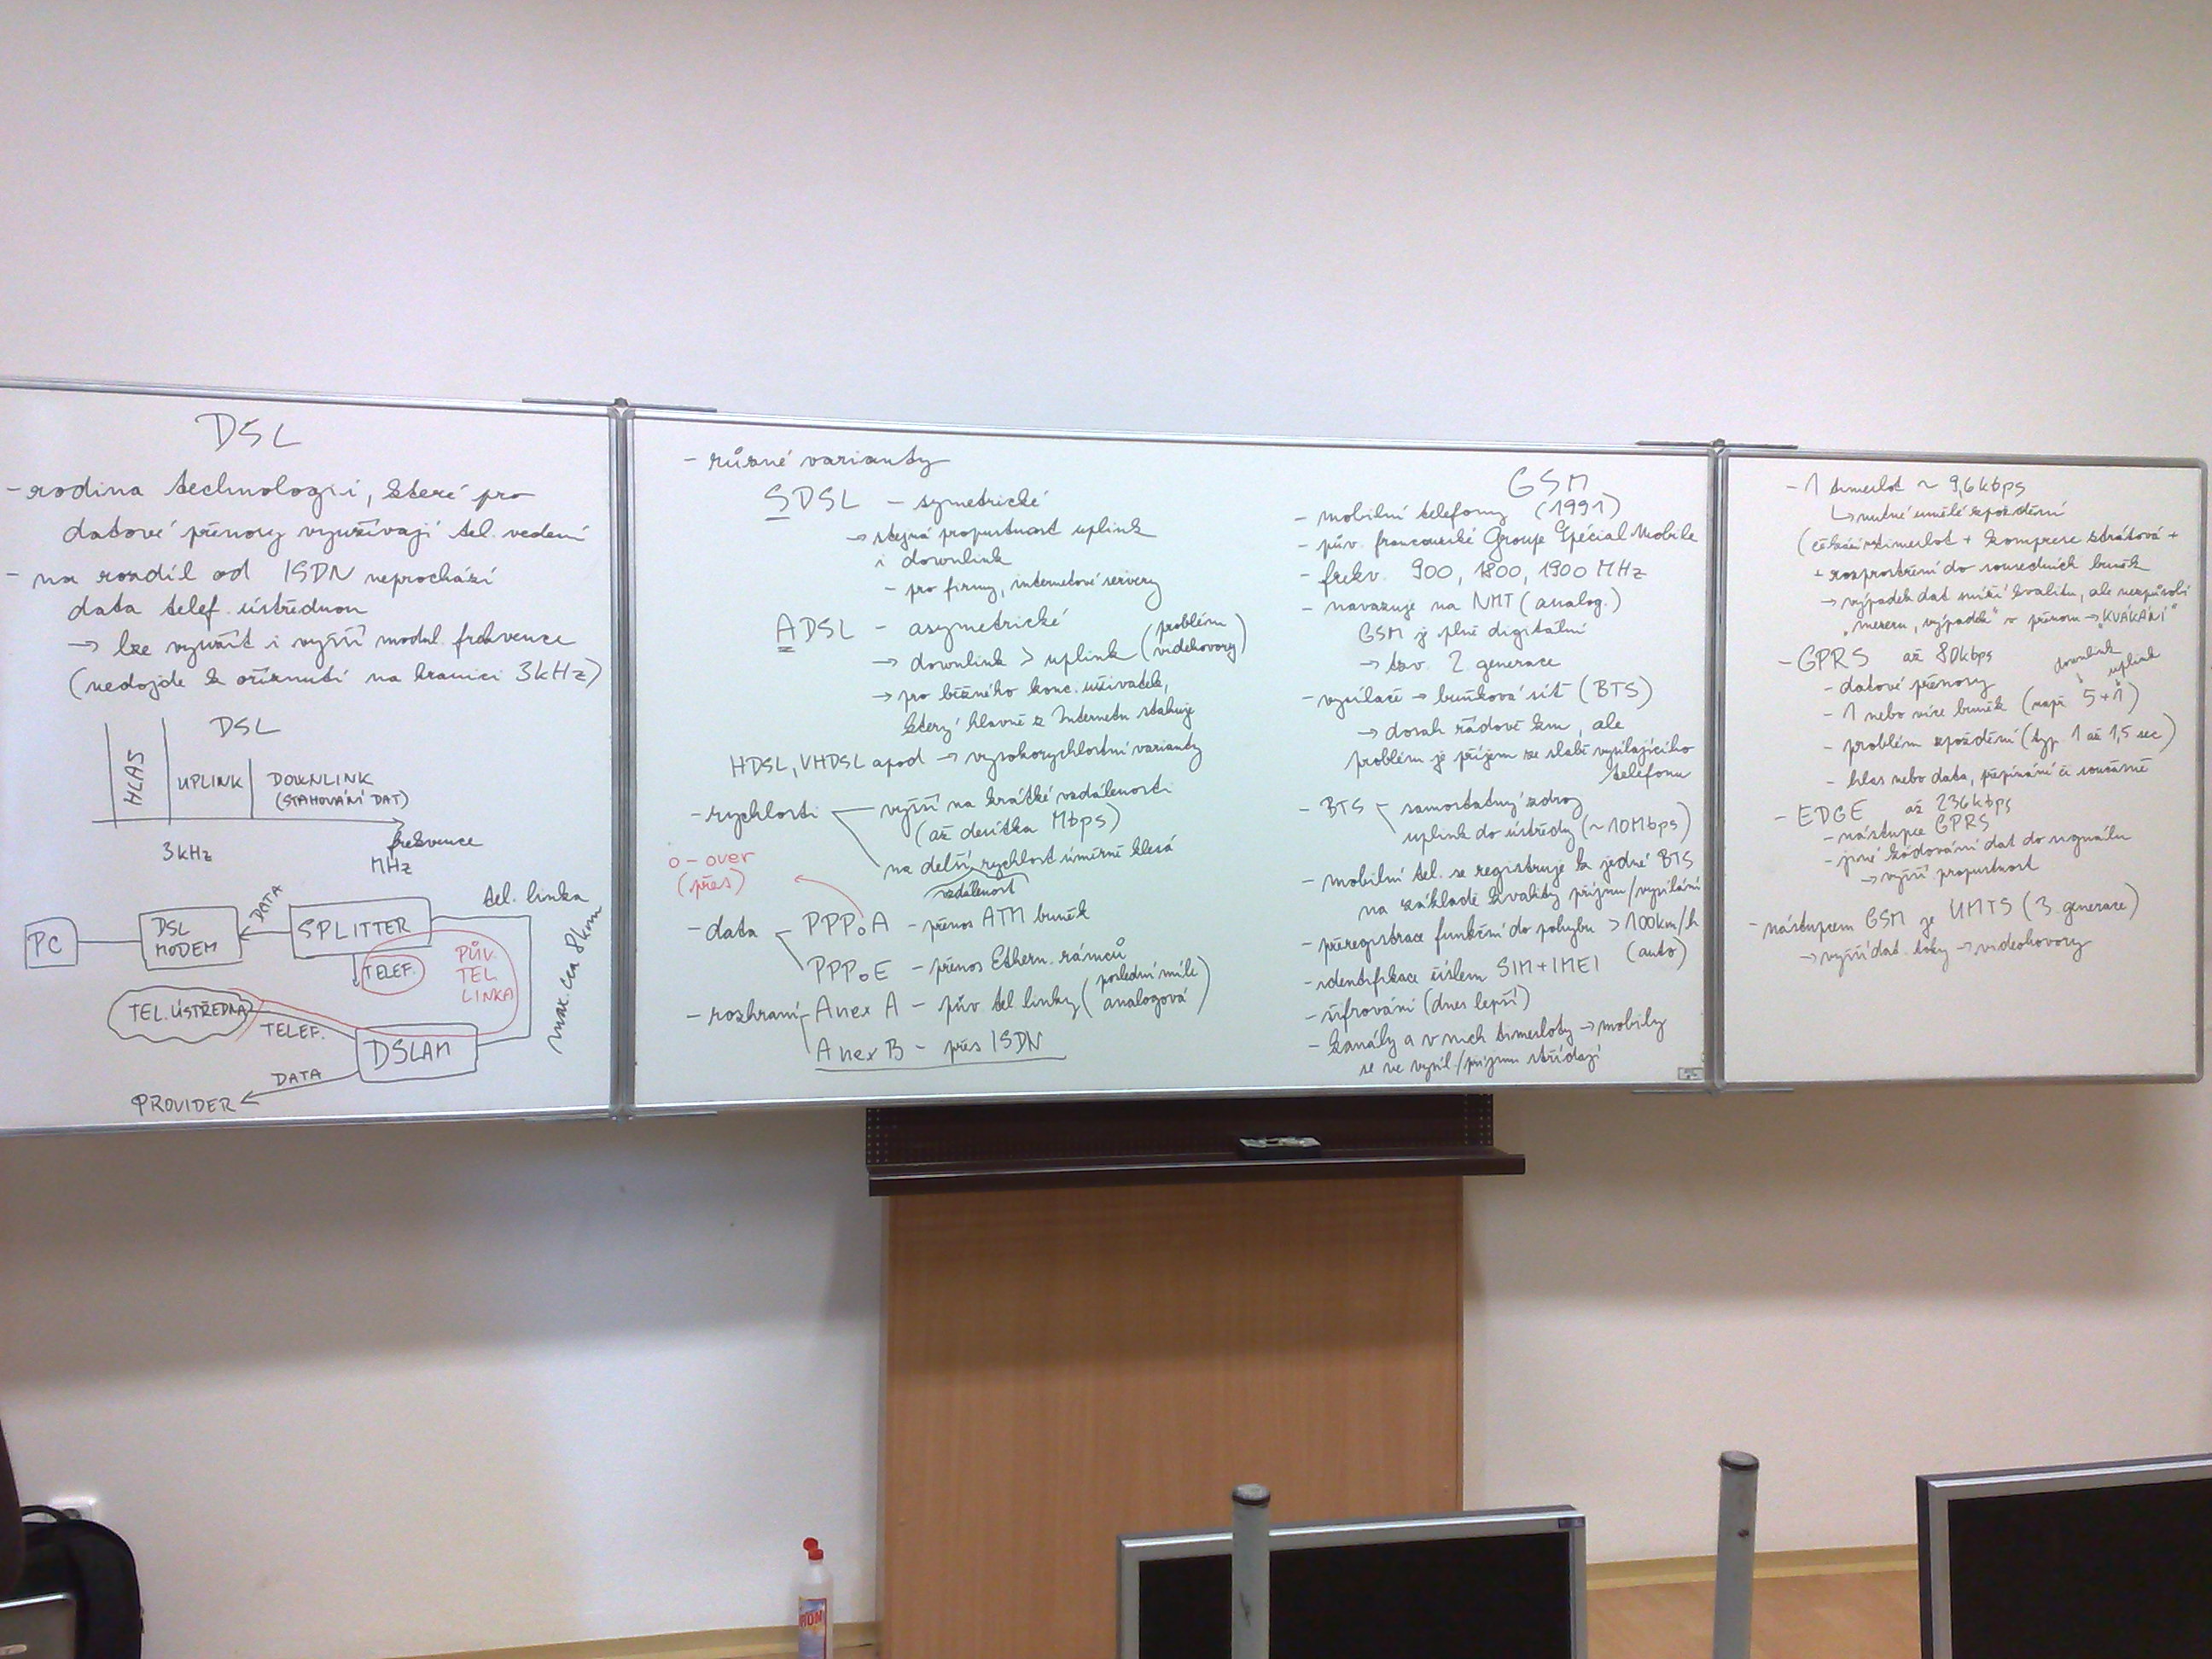 DSL
- rodina technologií, které pro
datové přenosy využívají tel. vedení
- na rozdíl od ISDN neprochází
data telef. ústřednou
→ lze využít i vyšší modul. frekvence
(nedojde k oříznutí na hranici 3kHz)
DSL
HLAS
UPLINK
DOWNLINK
(STAHOVÁNÍ DAT)
3kHz
frekvence
MHz
tel. linka
PC
DSL
MODEM
DATA
SPLITTER
TELEF.
PŮV.
TEL
LINKA
max. cca 8km
TEL. ÚSTŘEDNA
TELEF.
DSLAM
DATA
PROVIDER
- různé varianty
SDSL - symetrické
→ stejná propustnost uplink
i downlink
- pro firmy, internetové servery
ADSL - asymetrické
→ downlink > uplink (problém videhovory)
→ pro běžného konc. uživatele,
který hlavně z Internetu stahuje
HDSL, VHDSL apod → vysokorychlostní varianty
- rychlosti
vyšší na krátké vzdálenosti
(až desítka Mbps)
na delší rychlost úměrně klesá
vzdálenost
o - over
(přes)
- data
PPPoA - přenos ATM buněk
PPPoE - přenos Ethern. rámců
- rozhraní
Anex A - pův. tel. linky (poslední míle analogová)
Anex B - přes ISDN
GSM
- mobilní telefony (1991)
- pův. francouzské Groupe Spécial Mobile
- frekv. 900, 1800, 1900 MHz
- navazuje na NMT (analog.)
GSM je plně digitální
→ tzv. 2 generace
- vysílače → buňková síť (BTS)
→ dosah řádově km, ale
problém je příjem ze slabě vysílajícího
telefonu
- BTS
samostatný zdroj
uplink do ústředny (~10Mbps)
- mobilní tel. se registruje k jedné BTS
na základě kvality příjmu/vysílání
- přeregistrace funkční do pohybu > 100km/h
(auto)
- identifikace číslem SIM + IMEI
- šifrování (dnes lepší)
- kanály a v nich timesloty → mobily
se ve vysíl./příjmu střídají
- 1 timeslot ~ 9,6kbps
↳ nutné umělé zpoždění
(čekání na timeslot + komprese ztrátová +
+ rozprostření do sousedních buněk
→ výpadek dat sníží kvalitu, ale nezpůsobí
výpadek" v přenosu → "KVÁKÁNÍ"
- GPRS až 80kbps
downlink
uplink
- datové přenosy
- 1 nebo více buněk (např. 5+1)
- problém zpoždění (typ. 1 až 1,5 sec)
- hlas nebo data, přepínání či současně
- EDGE až 236kbps
- nástupce GPRS
- jiné kódování dat do signálu
→ vyšší propustnost
- nástupcem GSM je UMTS (3. generace)
→ vyšší dat. toky → videohovory